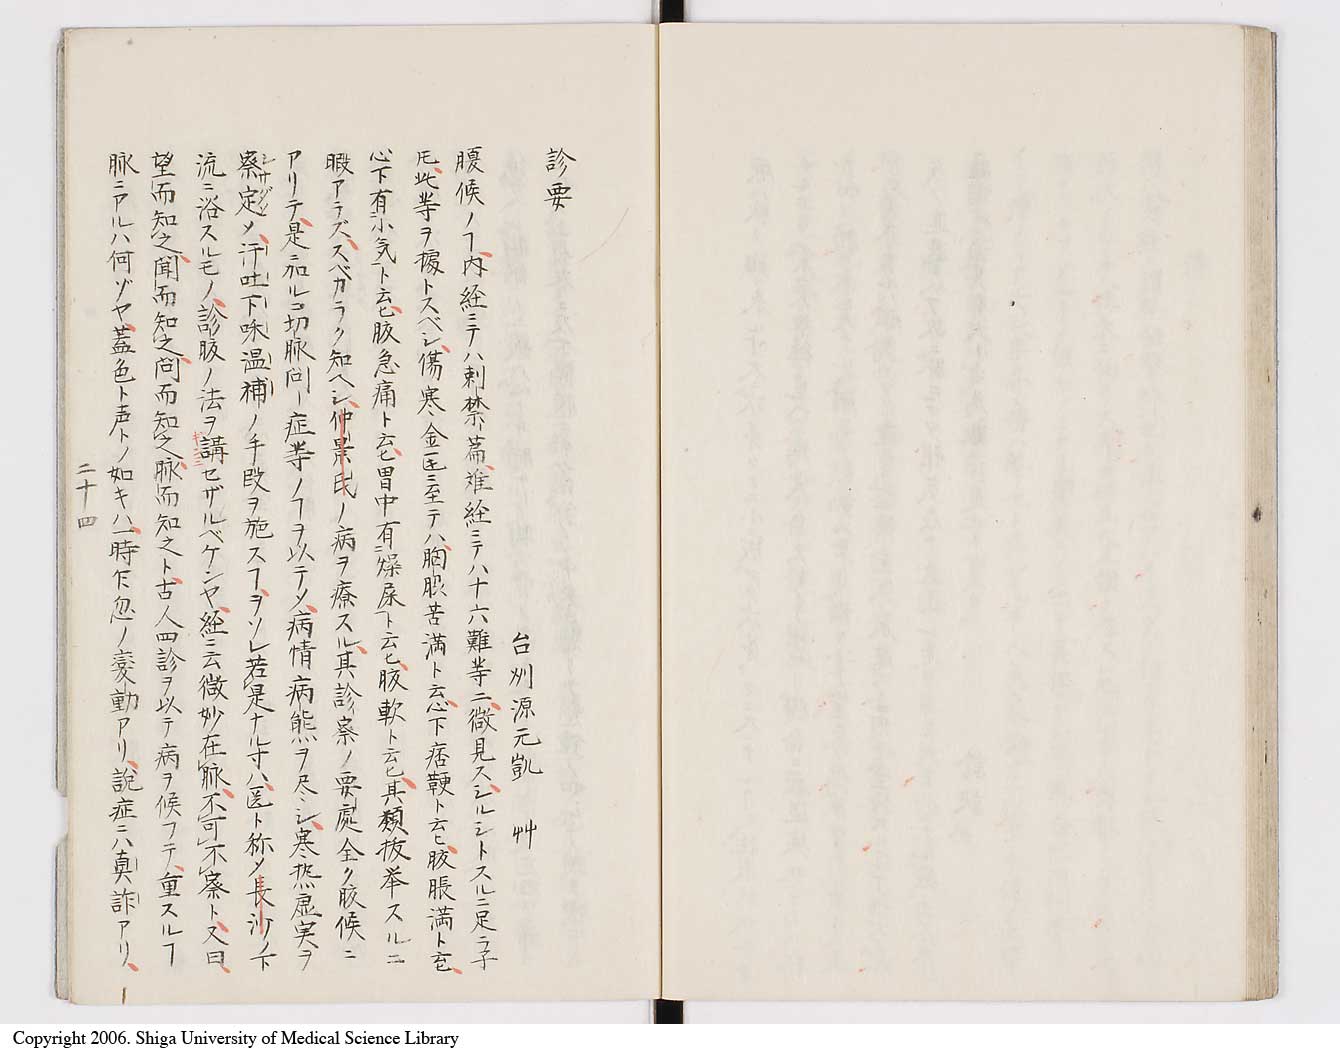 診要
台州源元凱 艸
腹候ノヿ、内経ニテハ刺禁篇、難経ニテハ十六難等ニ、微見ス、シルシトスルニ足ラ子
𪜈、此等ヲ據トスベシ、傷寒金匱ニ至テハ、胸腹苦満ト云、心下痞鞕ト云ヒ、腹脹満ト云、
心下有水気ト云ヒ、腹急痛ト云、胃中有燥屎ト云ヒ、腹軟ト云ヒ、其類抜挙スルニ
暇アラズ、スベカラク知ヘシ、仲景氏ノ病ヲ療スル、其診察ノ要處全ク腹候ニ
アリテ、是ニ加ルニ切脉問症等ノヿヲ以テメ、病情病態ヲ尽シ、寒熱虚実ヲ
察定メ、汗吐下和温補ノ手段ヲ施スヿヲソレ若是ナル寸ハ、医ト称メ長沙ノ下
流ニ浴スルモノ、診腹ノ法ヲ講セザルベケンヤ、経ニ云微妙在脉、不可不察ト、又曰、
望而知之、聞而知之、問而知之、脉而知之ト、古人四診ヲ以テ病ヲ候フテ、重スルヿ
脉ニアルハ何ゾヤ、蓋色ト声トノ如キハ、一時乍忽ノ変動アリ、説症ニハ真詐アリ、
二十四
Copyright 2006. Shiga University of Medical Science Library